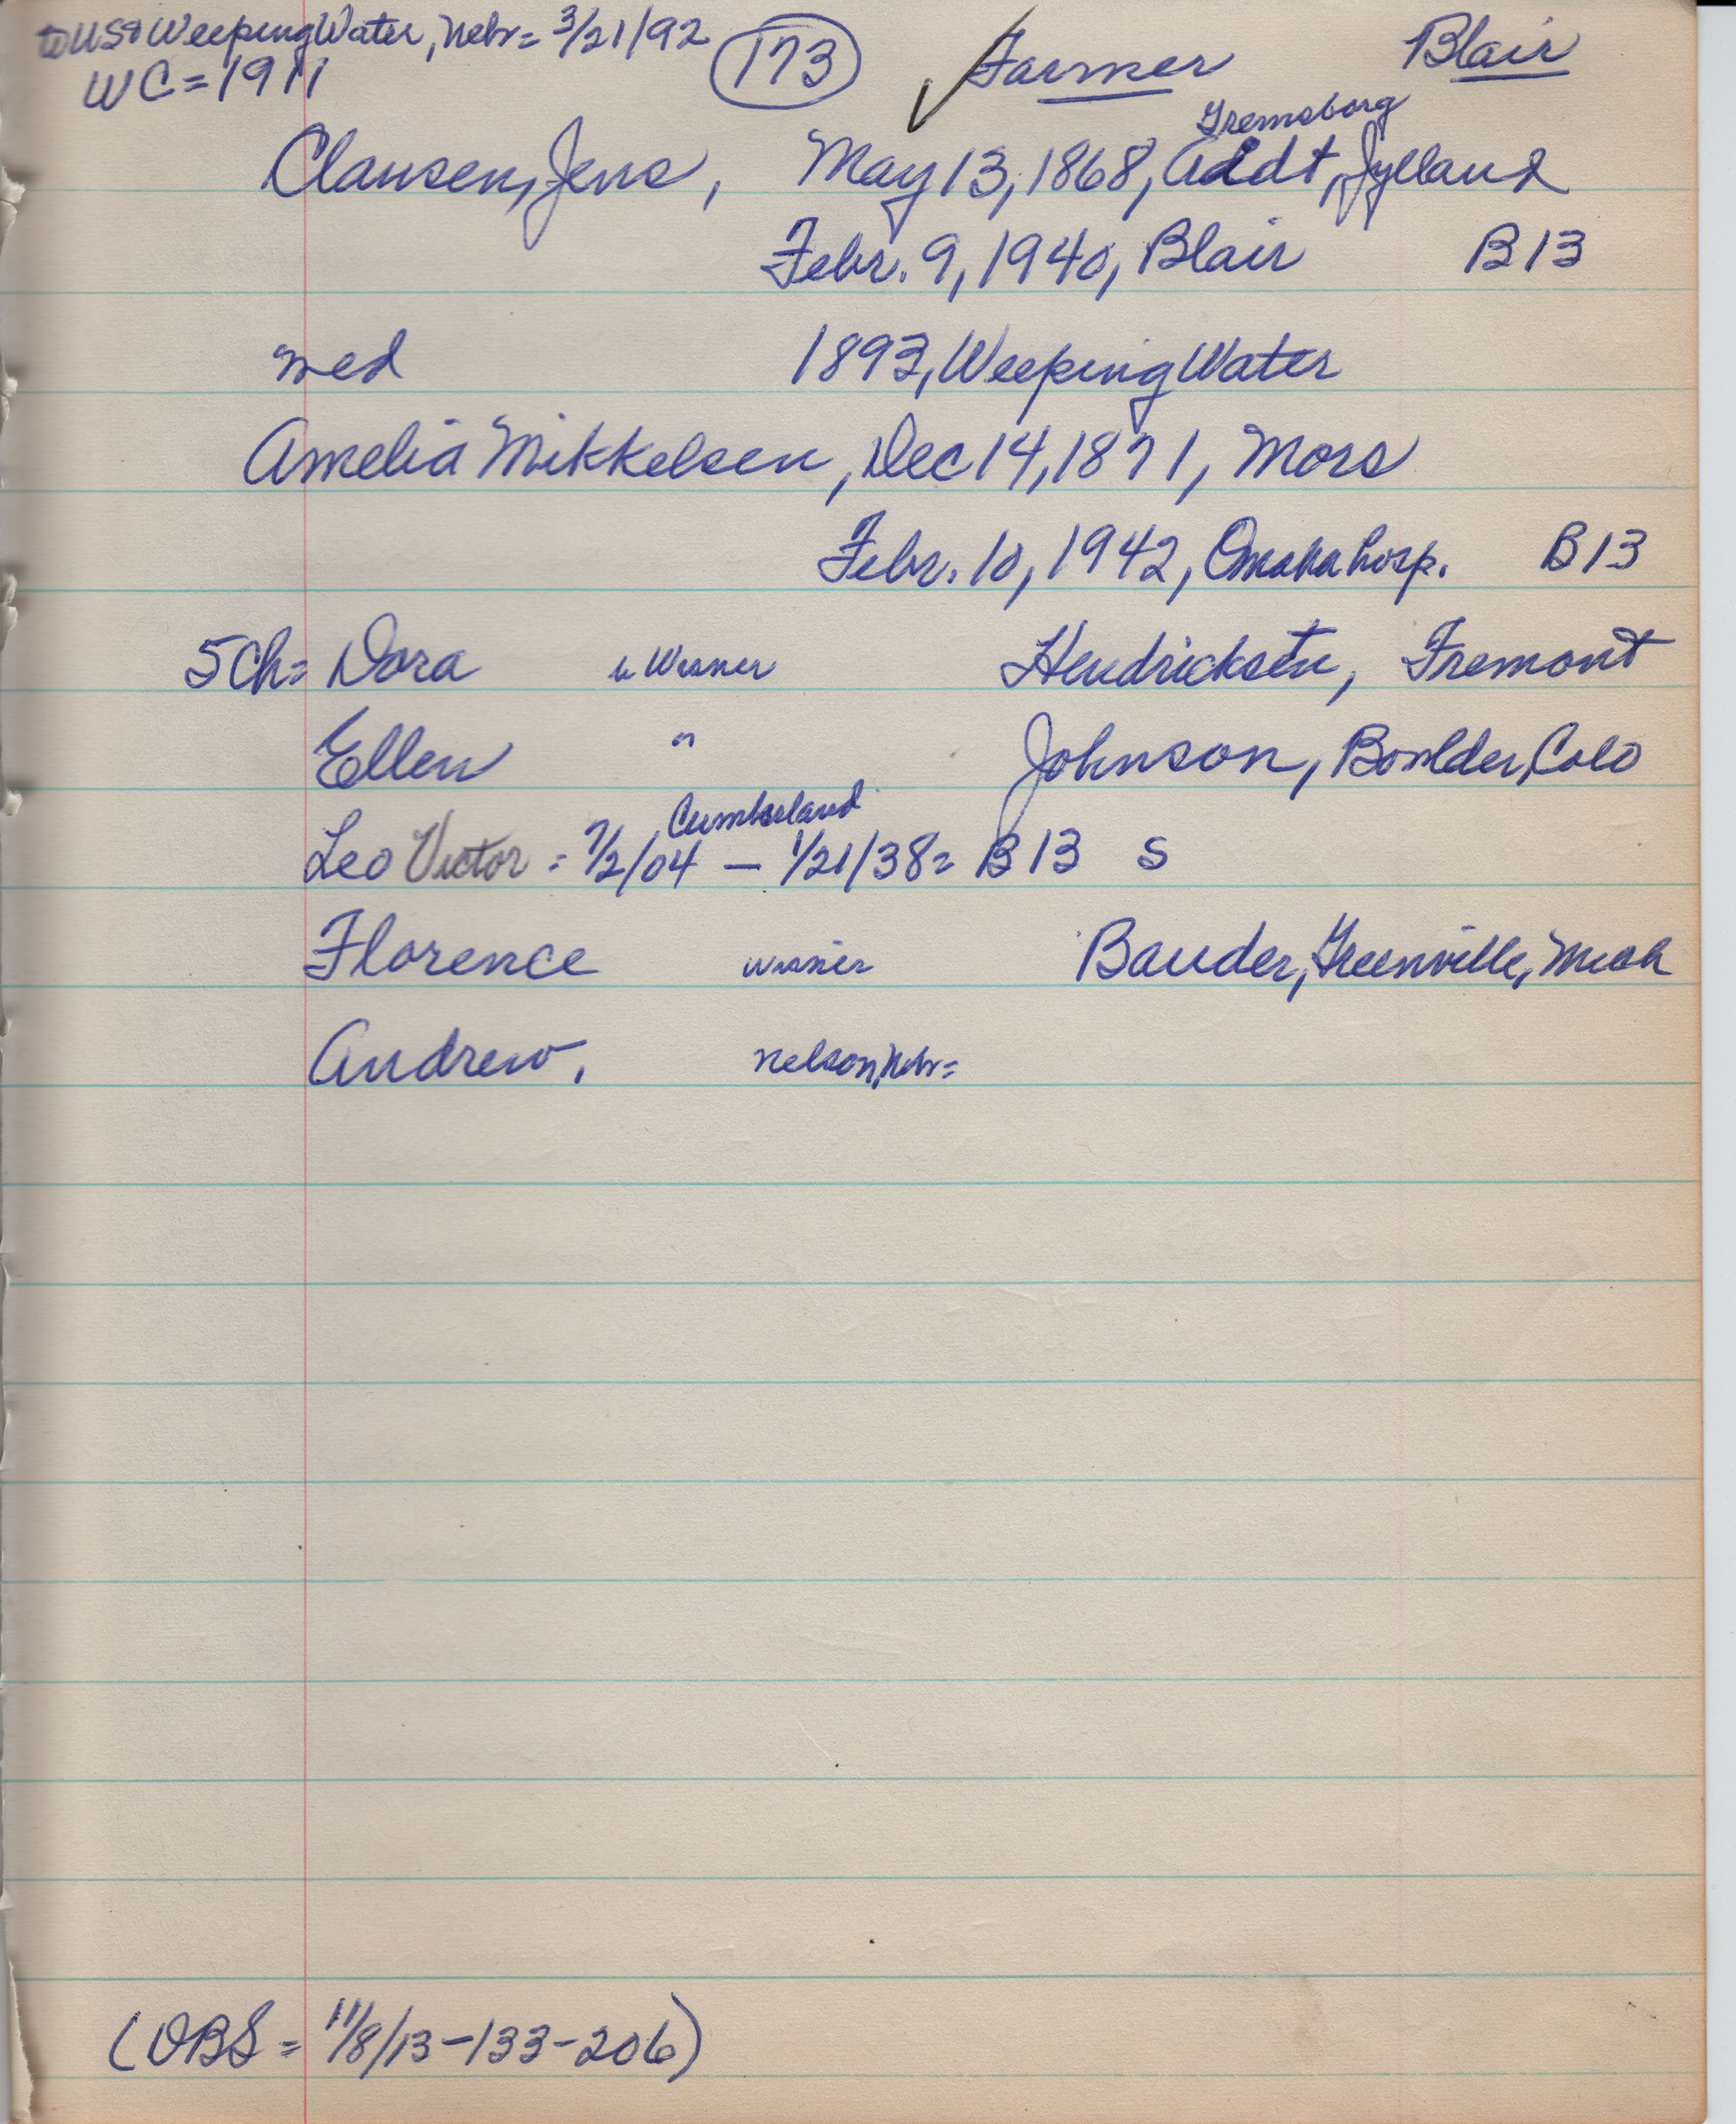 to US & Weeping Water, Nebr = 3/21/92 (173) ✓ Farmer Blair
WC = 1911
Gremsborg
Clausen, Jens, May 13, 1868, Addt, Jylland
Febr. 9, 1940, Blair B13
med 1893, Weeping Water
Amelia Mikkelsen, Dec 14, 1871, Mors
Febr. 10, 1942, Omaha hosp. B13
5 Ch = Dora b Wisner Hendricksen, Fremont
Ellen " Johnson, Boulder, Colo
Cumberland
Leo Victor = 7/2/04 — 1/21/38 = B13 S
Florence Wisner Bauder, Greenville, Mich
Andrew, Nelson, Nebr =
(OBS = 11/8/13-133-206)